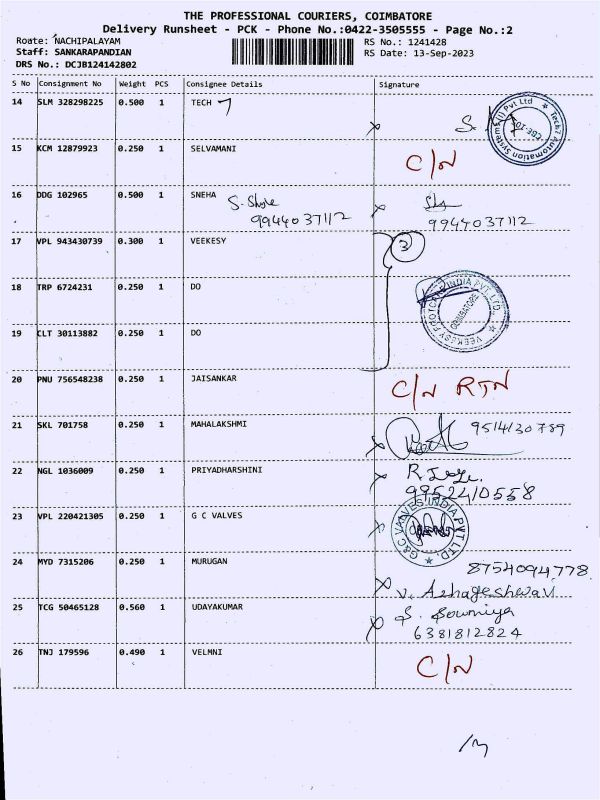 THE PROFESSIONAL COURIERS, COIMBATORE
Delivery Runsheet - PCK - Phone No.:0422-3505555 - Page No.:2
Roate: NACHIPALAYAM RS No.: 1241428
Staff: SANKARAPANDIAN RS Date: 13-Sep-2023
DRS No.: DCJB124142802
S No Consignment No Weight PCS Consignee Details Signature
14 SLM 328298225 0.500 1 TECH 7
Tech7 Automation Systems (I) Pvt Ltd
CBE-10
15 KCM 12879923 0.250 1 SELVAMANI C/N
16 DDG 102965 0.500 1 SNEHA
9944037112 9944037112
17 VPL 943430739 0.300 1 VEEKESY 3
18 TRP 6724231 0.250 1 DO
VEEKESY INDIA PVT. LTD.
COIMBATORE
19 CLT 30113882 0.250 1 DO
20 PNU 756548238 0.250 1 JAISANKAR C/N RTN
21 SKL 701758 0.250 1 MAHALAKSHMI 9514130789
22 NGL 1036009 0.250 1 PRIYADHARSHINI
9952410558
23 VPL 220421305 0.250 1 G C VALVES
G&C VALVES INDIA PVT LTD.
24 MYD 7315206 0.250 1 MURUGAN 8754094778
V. Azhageshwavi
25 TCG 50465128 0.560 1 UDAYAKUMAR S. Sowmiya
6381812824
26 TNJ 179596 0.490 1 VELMNI C/N